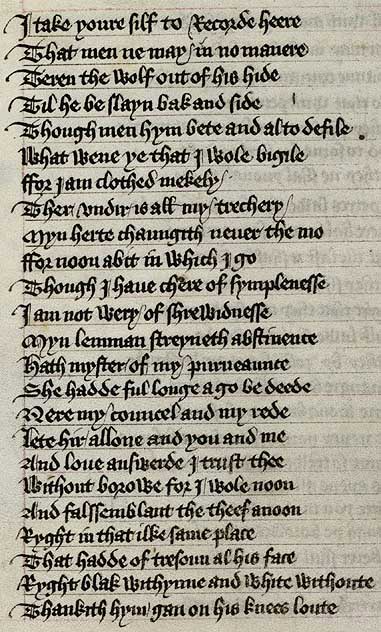 I take youre silf to Recorde heere
That men ne may in no manere
Teren the wolf out of his hide
Til he be slayn bak and side
Though men hym bete and al to defile
What wene ye that I wole bigile
ffor I am clothed mekely
Ther vndir is all my trechery
Myn herte chaungith neuer the mo
ffor noon abit in which I go
Though I haue chere of symplenesse
I am not wery of shrewidnesse
Myn lemman streyneth abstinence
Hath myster of my purueaunce
She hadde ful longe a go be deede
Nere my councel and my rede
Lete hir allone and you and me
And loue answerde I trust thee
Without borowe for I wole noon
And falssemblant the theef anoon
Ryght in that ilke same place
That hadde of tresoun al his face
Ryght blak withynne and white withoute
Thankith hym gan on his knees loute